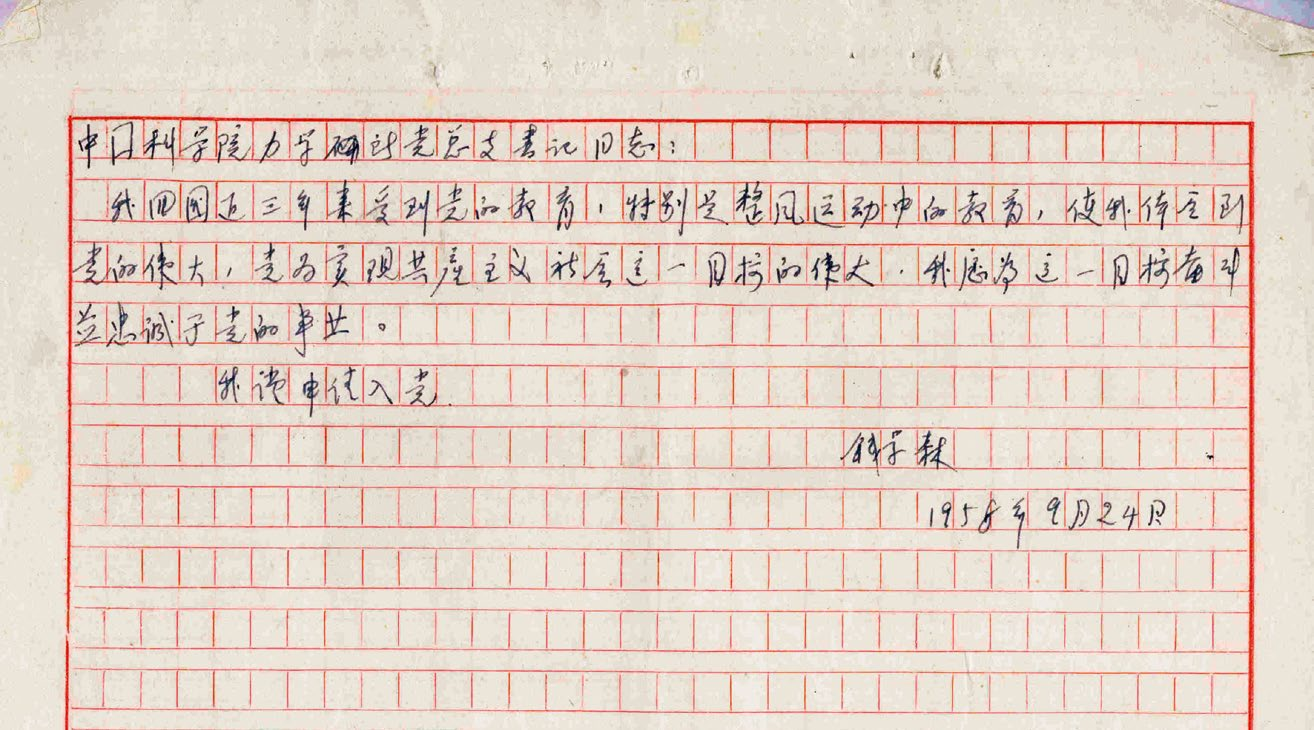 中国科学院力学研究所党总支书记同志：
我回国近三年来受到党的教育，特别是整风运动中的教育，使我体会到
党的伟大，党为实现共产主义社会这一目标的伟大。我愿为这一目标奋斗
并忠诚于党的事业。
我谨申请入党.
钱学森
1958年9月24日